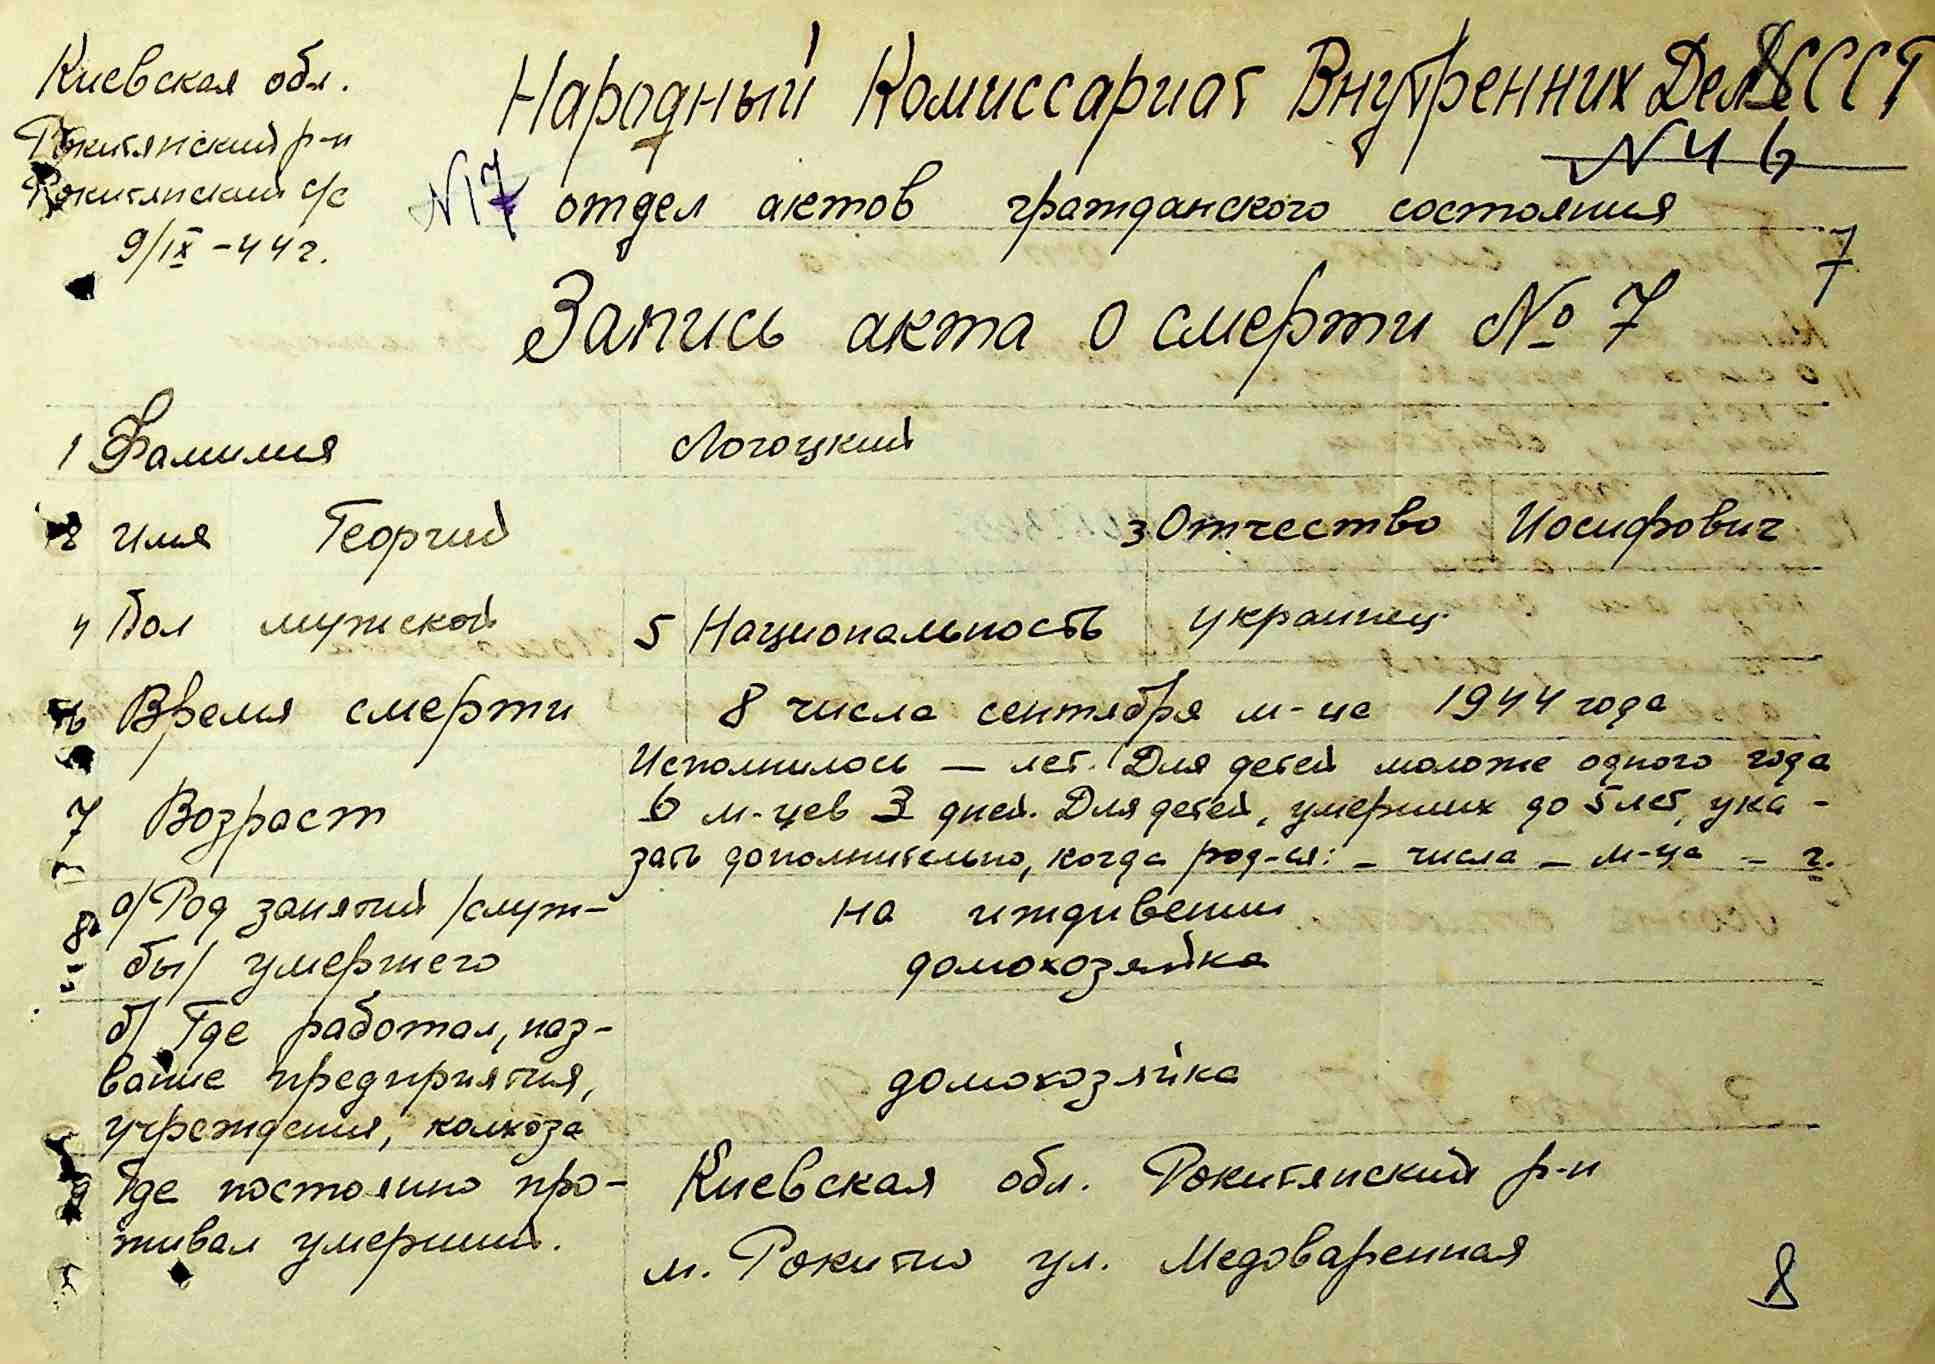 Киевская обл.
Рокитянский р-н
Рокитянский с/с
9/IX -44 г.
Народный Комиссариат Внутренних Дел СССР
N 4 6
N 17
отдел актов гражданского состояния
7
Запись акта о смерти № 7
1 Фамилия Логоцкий
2 Имя Георгий 3 Отчество Иосифович
4 Пол мужской 5 Национальность украинец
6 Время смерти 8 числа сентября м-ца 1944 года
7 Возраст
Исполнилось — лет. Для детей моложе одного года
6 м-цев 3 дней. Для детей, умерших до 5 лет, ука-
зать дополнительно, когда род-ся: – числа – м-ца – г.
8 а/ Род занятий /служ-
бы/ умершего
на иждивении
домохозяйка
б/ Где работал, наз-
вание предприятия,
учреждения, колхоза
домохозяйка
9 Где постоянно про-
живал умерший.
Киевская обл. Рокитянский р-н
м. Рокитно ул. Медоваренная
8